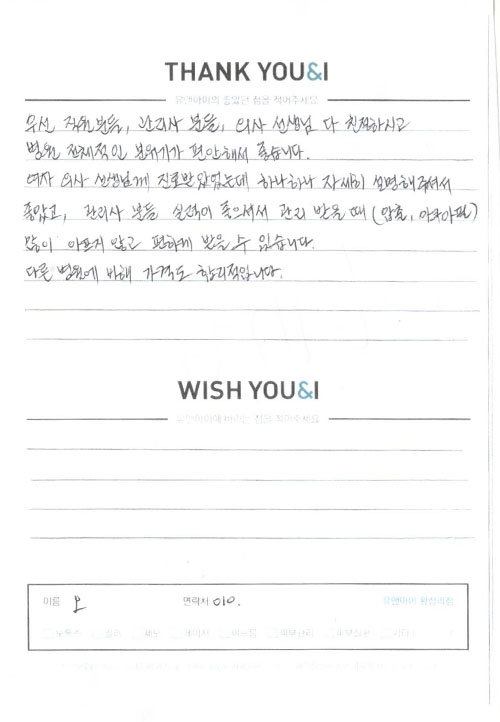 THANK YOU&I
유앤아이의 좋았던 점을 적어주세요
우선 직원분들, 관리사 분들, 의사 선생님 다 친절하시고
병원 전체적인 분위기가 편안해서 좋습니다.
여자 의사 선생님께 진료받았었는데 하나하나 자세히 설명해주셔서
좋았고, 관리사 분들 실력이 좋으셔서 관리 받을 때 (압출, 아쿠아필)
많이 아프지 않고 편하게 받을 수 있습니다.
다른 병원에 비해 가격도 합리적입니다.
WISH YOU&I
유앤아이에 바라는 점을 적어주세요
이름 오 연락처 010.
보톡스 필러 제모 레이저 여드름 피부관리 기타